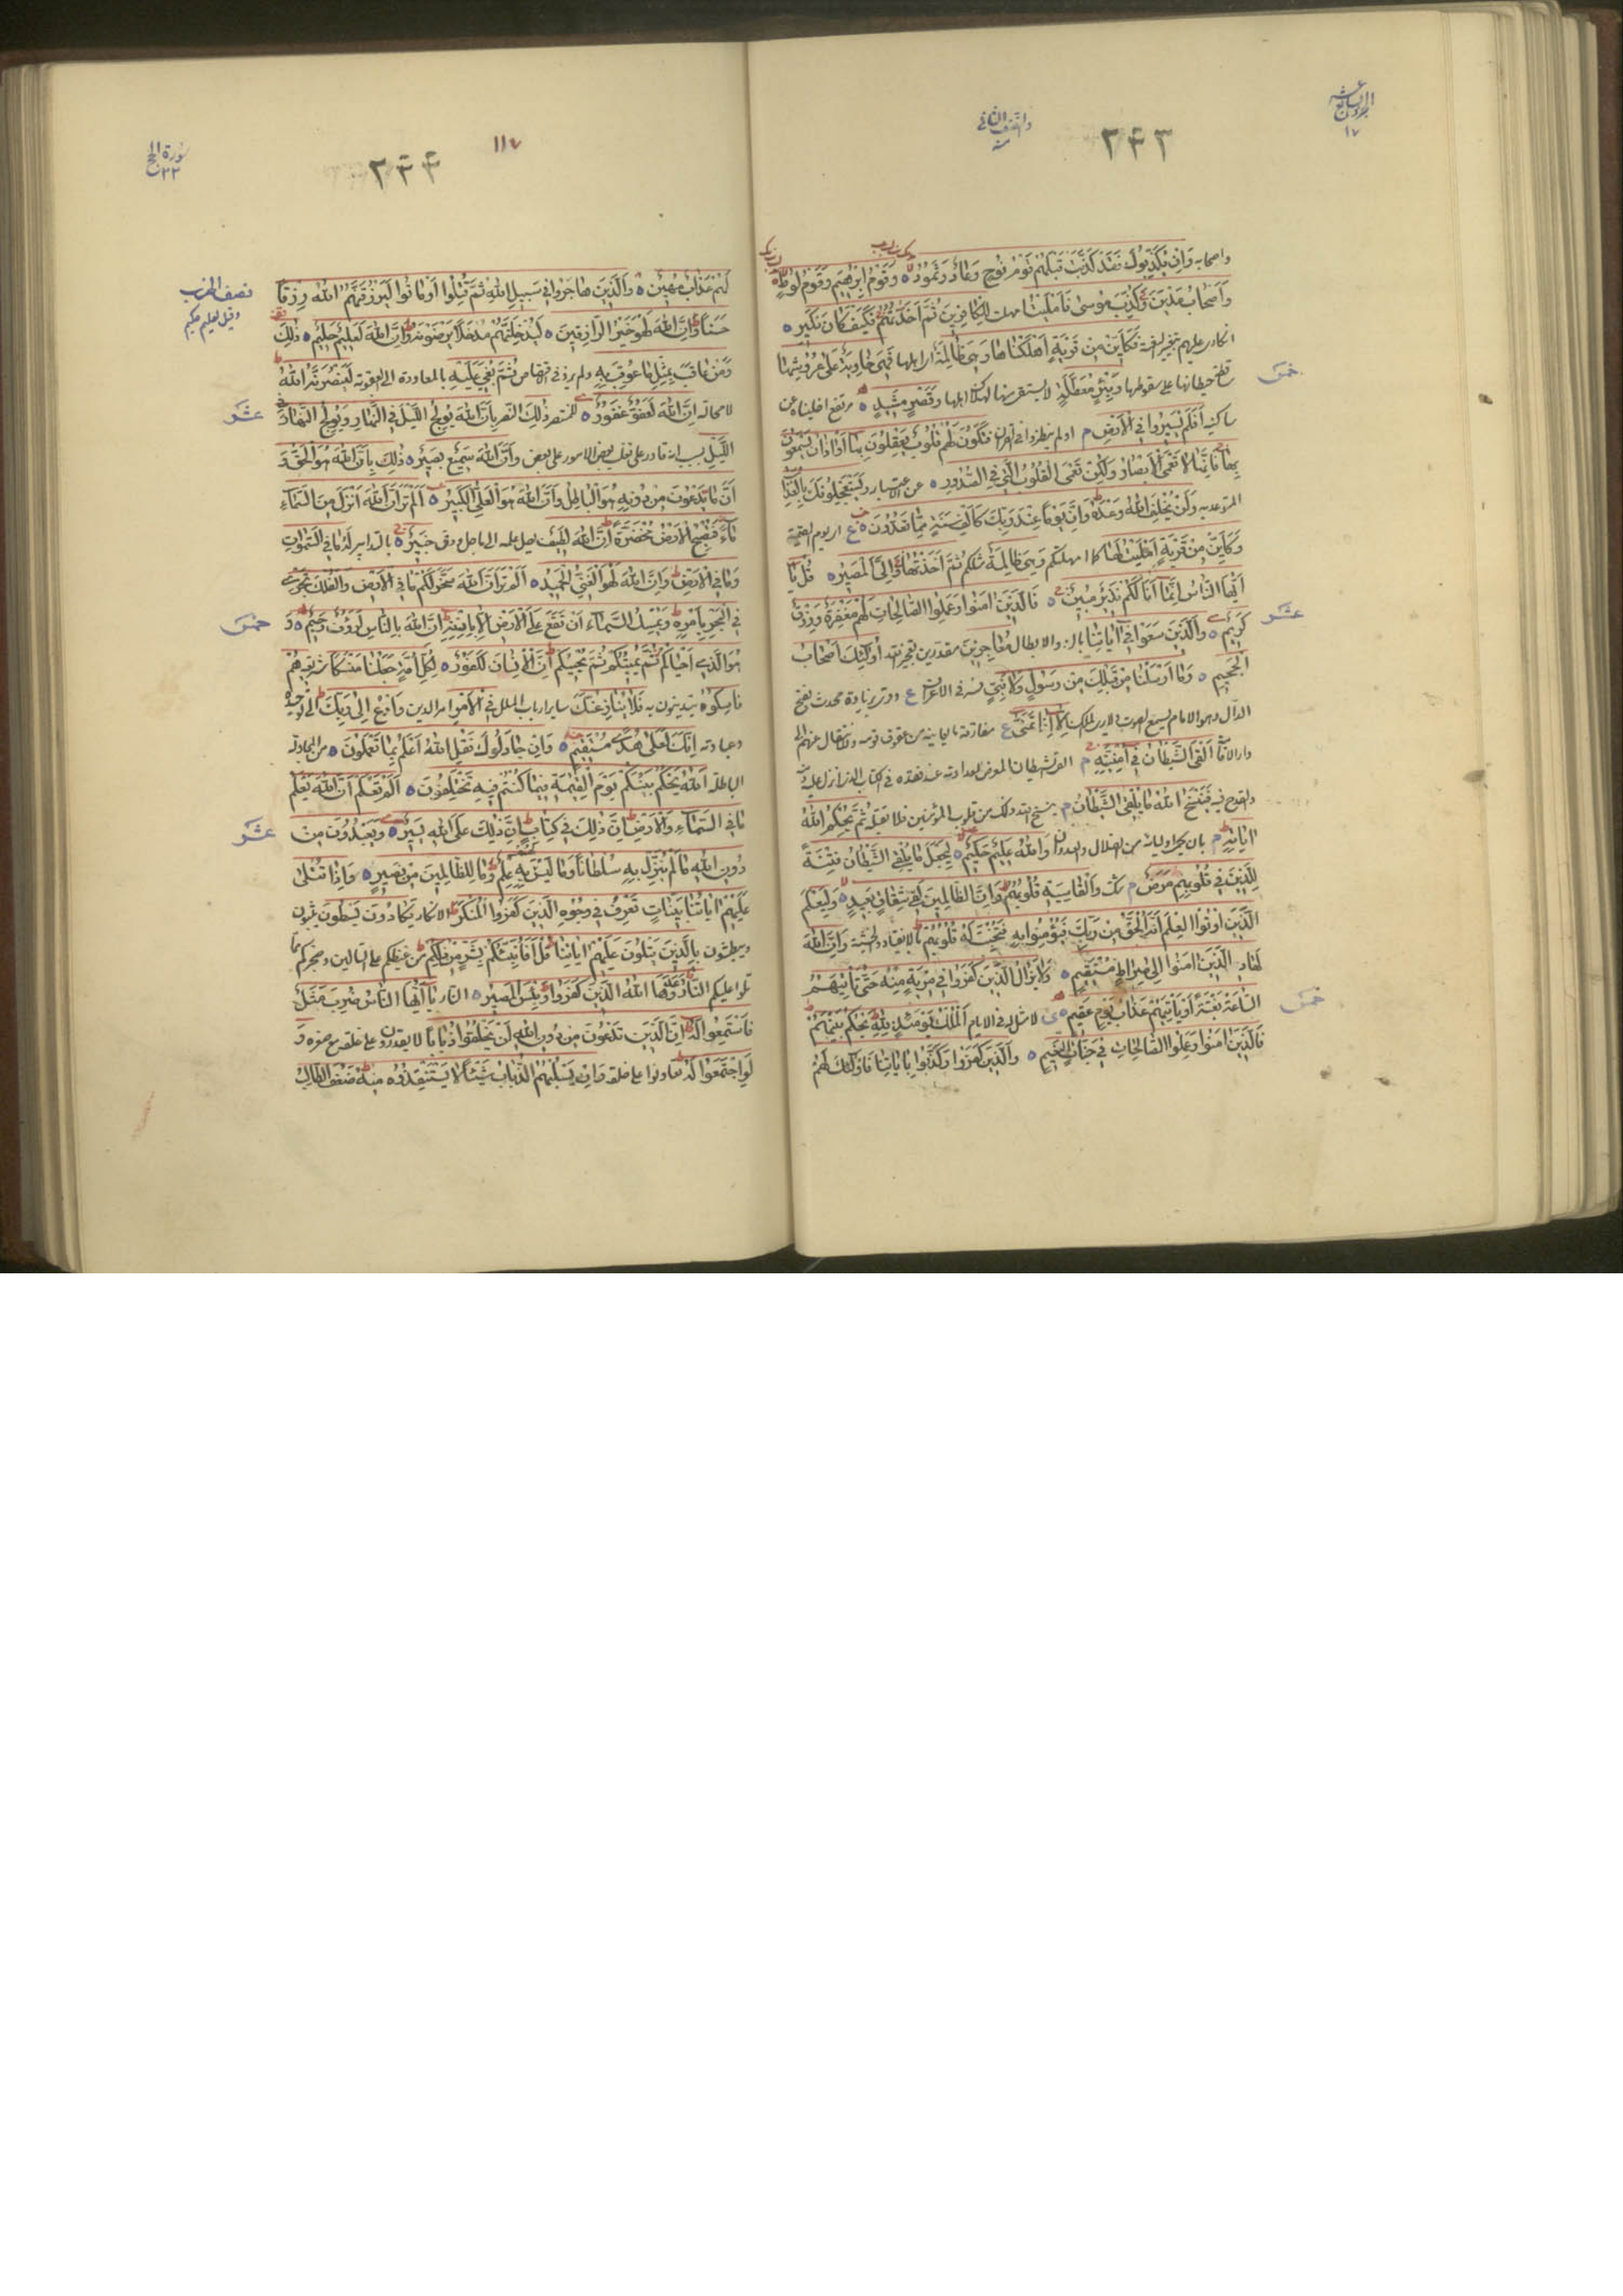 الجزء السابع عشر
١٧
والنصف الثاني
٢٤٣
واصحابه وَاِنْ يُكَذِّبُوكَ فَقَدْ كَذَّبَتْ قَبْلَهُمْ قَوْمُ نُوحٍ وَعَادٌ وَثَمُودُ ه وَقَوْمُ اِبْرٰهِيمَ وَقَوْمُ لُوطٍ
وَاَصْحَابُ مَدْيَنَ وَكُذِّبَ مُوسٰى فَاَمْلَيْتُ امهلت لِلْكَافِرِينَ ثُمَّ اَخَذْتُهُمْ فَكَيْفَ كَانَ نَكِيرِ ه
انكارى عليهم بتغيير النعمة فَكَاَيِّنْ مِنْ قَرْيَةٍ اَهْلَكْنَاهَا وَهِيَ ظَالِمَةٌ اى اهلها فَهِيَ خَاوِيَةٌ عَلٰى عُرُوشِهَا
حيطانها على سقوطها وَبِئْرٍ مُعَطَّلَةٍ لا يستقى منها لهلاك اهلها وَقَصْرٍ مَشِيدٍ ه مرتفع اخليناه عن
ساكنيه اَفَلَمْ يَسِيرُوا فِي الْاَرْضِ م اولم ينظروا فى القران فَتَكُونَ لَهُمْ قُلُوبٌ يَعْقِلُونَ بِهَا اَوْ اٰذَانٌ يَسْمَعُونَ
بِهَا فَاِنَّهَا لَا تَعْمَى الْاَبْصَارُ وَلٰكِنْ تَعْمَى الْقُلُوبُ الَّتِي فِي الصُّدُورِ ه عن الاعتبار وَيَسْتَعْجِلُونَكَ بِالْعَذَابِ
المتوعد به وَلَنْ يُخْلِفَ اللّٰهُ وَعْدَهُ وَاِنَّ يَوْمًا عِنْدَ رَبِّكَ كَاَلْفِ سَنَةٍ مِمَّا تَعُدُّونَ ه ع اى يوم القيمة
وَكَاَيِّنْ مِنْ قَرْيَةٍ اَمْلَيْتُ لَهَا كما امهلتكم وَهِيَ ظَالِمَةٌ مثلكم ثُمَّ اَخَذْتُهَا وَاِلَيَّ الْمَصِيرُ ه قُلْ يَا
اَيُّهَا النَّاسُ اِنَّمَا اَنَا لَكُمْ نَذِيرٌ مُبِينٌ ه فَالَّذِينَ اٰمَنُوا وَعَمِلُوا الصَّالِحَاتِ لَهُمْ مَغْفِرَةٌ وَرِزْقٌ
كَرِيمٌ ه وَالَّذِينَ سَعَوْا فِي اٰيَاتِنَا بالرد والابطال مُعَاجِزِينَ مقدرين تعجيزنا اُولٰئِكَ اَصْحَابُ
الْجَحِيمِ ه وَمَا اَرْسَلْنَا مِنْ قَبْلِكَ مِنْ رَسُولٍ وَلَا نَبِيٍّ فسر فى الاعراف ع وقرئ بزيادة محدث بفتح
الدال وهو الامام يسمع الصوت ولا يرى الملك اِلَّا اِذَا تَمَنّٰى ع مفارقة ما يعانيه من عقوق قومه والانتقال عنهم الى
دار الاقامة اَلْقَى الشَّيْطَانُ فِي اُمْنِيَّتِهِ م القى الشيطان المعرض لعداوته عند فقده فى الكتاب الذى انزل عليه ذمه
والقدح فيه فَيَنْسَخُ اللّٰهُ مَا يُلْقِي الشَّيْطَانُ م ينسخ الله ذلك من قلوب المؤمنين فلا تقبله ثُمَّ يُحْكِمُ اللّٰهُ
اٰيَاتِهِ م بان يحمى اولياءه من الضلال والعدوان وَاللّٰهُ عَلِيمٌ حَكِيمٌ ه لِيَجْعَلَ مَا يُلْقِي الشَّيْطَانُ فِتْنَةً
لِلَّذِينَ فِي قُلُوبِهِمْ مَرَضٌ م شك وَالْقَاسِيَةِ قُلُوبُهُمْ وَاِنَّ الظَّالِمِينَ لَفِي شِقَاقٍ بَعِيدٍ ه وَلِيَعْلَمَ
الَّذِينَ اُوتُوا الْعِلْمَ اَنَّهُ الْحَقُّ مِنْ رَبِّكَ فَيُؤْمِنُوا بِهِ فَتُخْبِتَ لَهُ قُلُوبُهُمْ بالانقياد والخشية وَاِنَّ اللّٰهَ
لَهَادِ الَّذِينَ اٰمَنُوا اِلٰى صِرَاطٍ مُسْتَقِيمٍ ه وَلَا يَزَالُ الَّذِينَ كَفَرُوا فِي مِرْيَةٍ مِنْهُ حَتّٰى تَاْتِيَهُمُ
السَّاعَةُ بَغْتَةً اَوْ يَاْتِيَهُمْ عَذَابُ يَوْمٍ عَقِيمٍ ه ى لا مثل له فى الايام اَلْمُلْكُ يَوْمَئِذٍ لِلّٰهِ يَحْكُمُ بَيْنَهُمْ
فَالَّذِينَ اٰمَنُوا وَعَمِلُوا الصَّالِحَاتِ فِي جَنَّاتِ النَّعِيمِ ه وَالَّذِينَ كَفَرُوا وَكَذَّبُوا بِاٰيَاتِنَا فَاُولٰئِكَ لَهُمْ
خمس
عشر
خمس
١١٧
٢٤٤
سورة الحج
٢٢
لَهُمْ عَذَابٌ مُهِينٌ ه وَالَّذِينَ هَاجَرُوا فِي سَبِيلِ اللّٰهِ ثُمَّ قُتِلُوا اَوْ مَاتُوا لَيَرْزُقَنَّهُمُ اللّٰهُ رِزْقًا
حَسَنًا وَاِنَّ اللّٰهَ لَهُوَ خَيْرُ الرَّازِقِينَ ه لَيُدْخِلَنَّهُمْ مُدْخَلًا يَرْضَوْنَهُ وَاِنَّ اللّٰهَ لَعَلِيمٌ حَلِيمٌ ه ذٰلِكَ
وَمَنْ عَاقَبَ بِمِثْلِ مَا عُوقِبَ بِهِ ولم يزد فى الاقتصاص ثُمَّ بُغِيَ عَلَيْهِ بالمعاودة الى العقوبة لَيَنْصُرَنَّهُ اللّٰهُ
لا محالة اِنَّ اللّٰهَ لَعَفُوٌّ غَفُورٌ ه للمنتصر ذٰلِكَ النصر بِاَنَّ اللّٰهَ يُولِجُ اللَّيْلَ فِي النَّهَارِ وَيُولِجُ النَّهَارَ فِي
اللَّيْلِ بسبب انه قادر على تغليب بعض الامور على بعض وَاَنَّ اللّٰهَ سَمِيعٌ بَصِيرٌ ه ذٰلِكَ بِاَنَّ اللّٰهَ هُوَ الْحَقُّ وَ
اَنَّ مَا يَدْعُونَ مِنْ دُونِهِ هُوَ الْبَاطِلُ وَاَنَّ اللّٰهَ هُوَ الْعَلِيُّ الْكَبِيرُ ه اَلَمْ تَرَ اَنَّ اللّٰهَ اَنْزَلَ مِنَ السَّمَاءِ
مَاءً فَتُصْبِحُ الْاَرْضُ مُخْضَرَّةً اِنَّ اللّٰهَ لَطِيفٌ يصل علمه الى ما جل ودق خَبِيرٌ ه بالتدابير لَهُ مَا فِي السَّمٰوَاتِ
وَمَا فِي الْاَرْضِ وَاِنَّ اللّٰهَ لَهُوَ الْغَنِيُّ الْحَمِيدُ ه اَلَمْ تَرَ اَنَّ اللّٰهَ سَخَّرَ لَكُمْ مَا فِي الْاَرْضِ وَالْفُلْكَ تَجْرِي
فِي الْبَحْرِ بِاَمْرِهِ وَيُمْسِكُ السَّمَاءَ اَنْ تَقَعَ عَلَى الْاَرْضِ اِلَّا بِاِذْنِهِ اِنَّ اللّٰهَ بِالنَّاسِ لَرَؤُفٌ رَحِيمٌ ه وَ
هُوَ الَّذِي اَحْيَاكُمْ ثُمَّ يُمِيتُكُمْ ثُمَّ يُحْيِيكُمْ اِنَّ الْاِنْسَانَ لَكَفُورٌ ه لِكُلِّ اُمَّةٍ جَعَلْنَا مَنْسَكًا شريعة هُمْ
نَاسِكُوهُ يتدينون به فَلَا يُنَازِعُنَّكَ ساير ارباب الملل فِي الْاَمْرِ امر الدين وَادْعُ اِلٰى رَبِّكَ الى توحيده
وعبادته اِنَّكَ لَعَلٰى هُدًى مُسْتَقِيمٍ ه وَاِنْ جَادَلُوكَ فَقُلِ اللّٰهُ اَعْلَمُ بِمَا تَعْمَلُونَ ه من المجادلة
الباطلة اَللّٰهُ يَحْكُمُ بَيْنَكُمْ يَوْمَ الْقِيٰمَةِ فِيمَا كُنْتُمْ فِيهِ تَخْتَلِفُونَ ه اَلَمْ تَعْلَمْ اَنَّ اللّٰهَ يَعْلَمُ
مَا فِي السَّمَاءِ وَالْاَرْضِ اِنَّ ذٰلِكَ فِي كِتَابٍ اِنَّ ذٰلِكَ عَلَى اللّٰهِ يَسِيرٌ ه وَيَعْبُدُونَ مِنْ
دُونِ اللّٰهِ مَا لَمْ يُنَزِّلْ بِهِ سُلْطَانًا وَمَا لَيْسَ لَهُمْ بِهِ عِلْمٌ وَمَا لِلظَّالِمِينَ مِنْ نَصِيرٍ ه وَاِذَا تُتْلٰى
عَلَيْهِمْ اٰيَاتُنَا بَيِّنَاتٍ تَعْرِفُ فِي وُجُوهِ الَّذِينَ كَفَرُوا الْمُنْكَرَ الانكار يَكَادُونَ يَسْطُونَ يثبون
ويبطشون بِالَّذِينَ يَتْلُونَ عَلَيْهِمْ اٰيَاتِنَا قُلْ اَفَاُنَبِّئُكُمْ بِشَرٍّ مِنْ ذٰلِكُمْ من غيظكم على التالين وضجركم مما
تلوا عليكم اَلنَّارُ وَعَدَهَا اللّٰهُ الَّذِينَ كَفَرُوا وَبِئْسَ الْمَصِيرُ ه النار يَا اَيُّهَا النَّاسُ ضُرِبَ مَثَلٌ
فَاسْتَمِعُوا لَهُ اِنَّ الَّذِينَ تَدْعُونَ مِنْ دُونِ اللّٰهِ لَنْ يَخْلُقُوا ذُبَابًا لا يقدرون على خلقه مع صغره وَ
لَوِ اجْتَمَعُوا لَهُ تعاونوا على خلقه وَاِنْ يَسْلُبْهُمُ الذُّبَابُ شَيْئًا لَا يَسْتَنْقِذُوهُ مِنْهُ ضَعُفَ الطَّالِبُ
نصف الحزب
وقيل لعليم حكيم
عشر
خمس
عشر